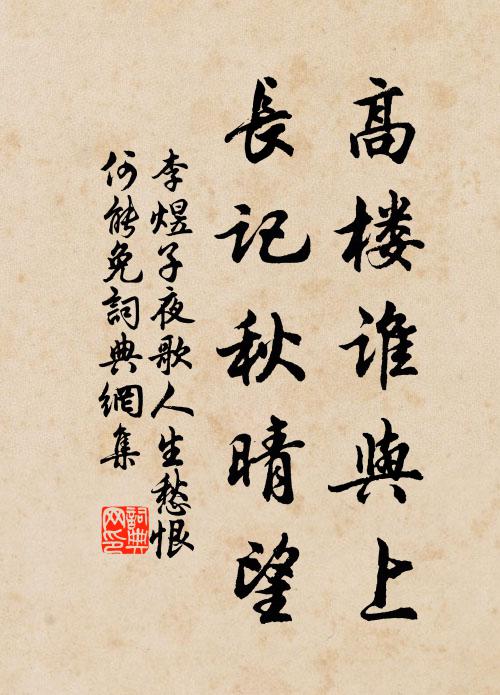 高楼谁與上
長记秋晴望
李煜子夜歌人生愁恨
何能免詞典網集
詞典
网印